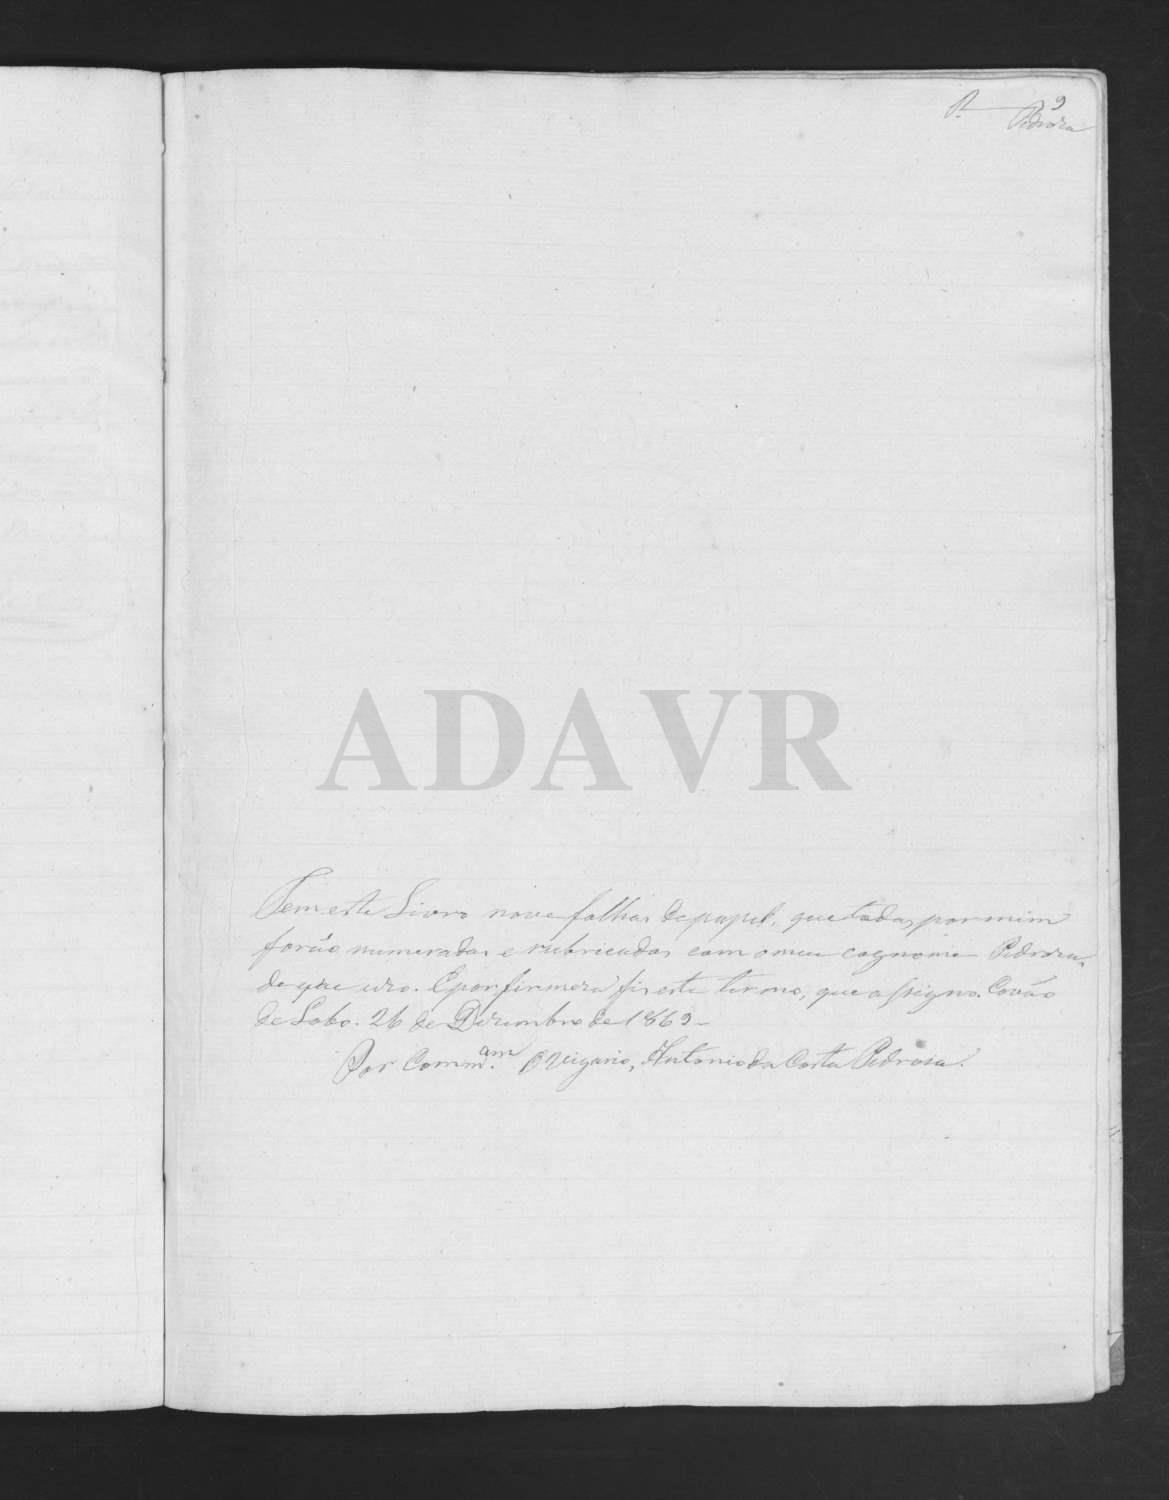 P. 9
Pedroza
ADAVR
Tem este Livro nove folhas de papel, que todas por mim
forão numeradas e rubricadas com o meu cognome Pedroza,
de que uzo. E por firmeza fiz este termo, que assigno. Covão
de Lobo. 26 de Dezembro de 1869 -
Por Comm.am O Vigario, Antonio da Costa Pedrosa.